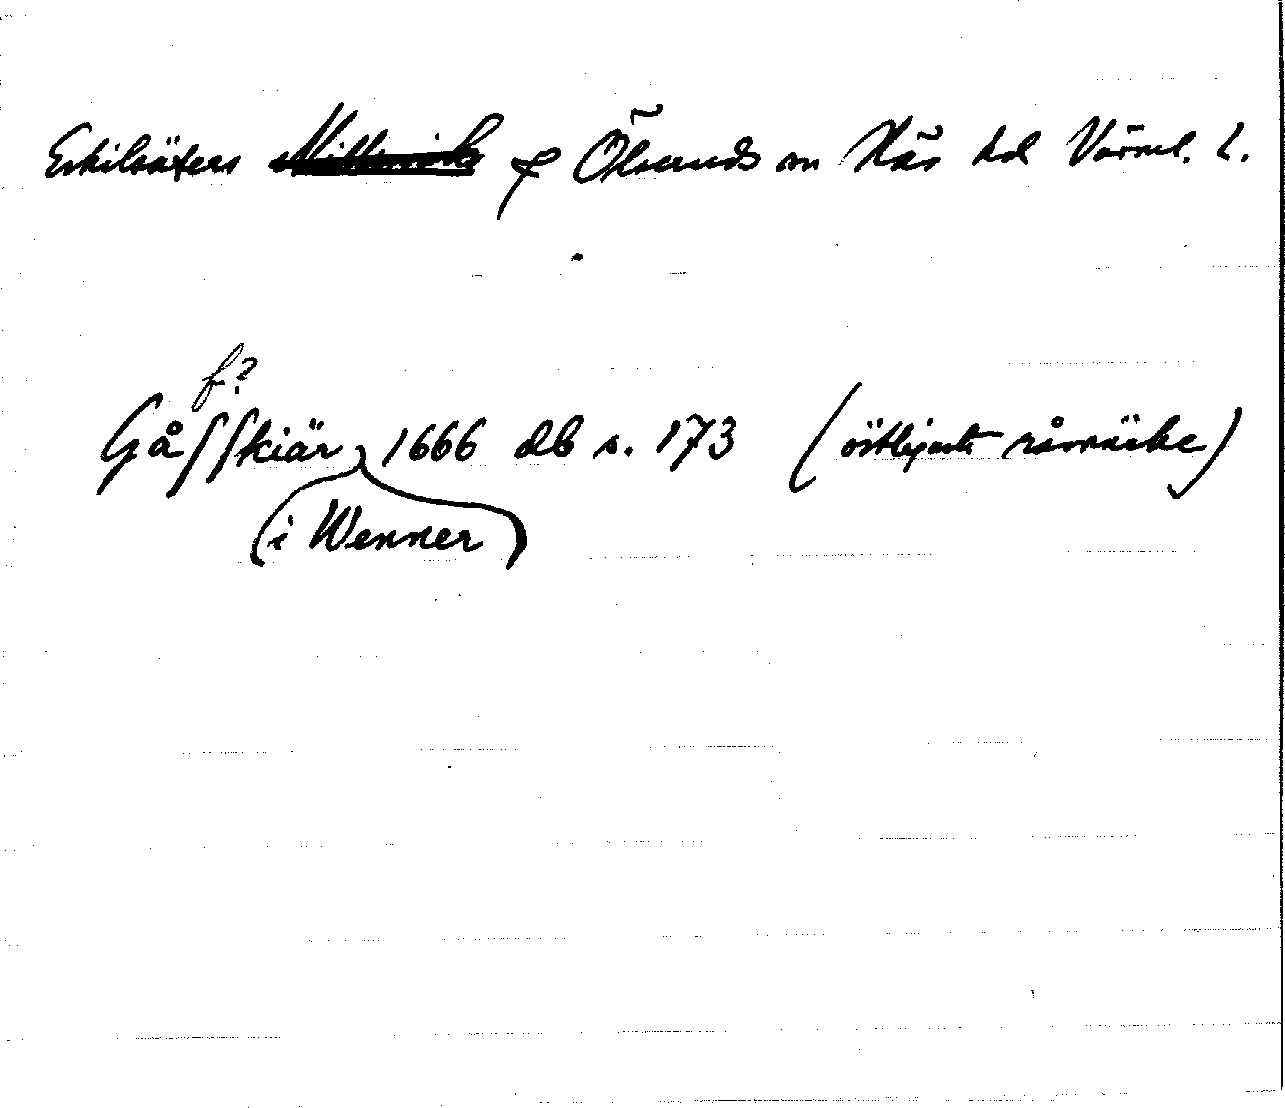 Eskilsäters sn Ölseruds sn Näs hd Värml. l.
f?
Gåsskiär, 1666 db s. 173 (östligaste råmärke)
(i Wenner)